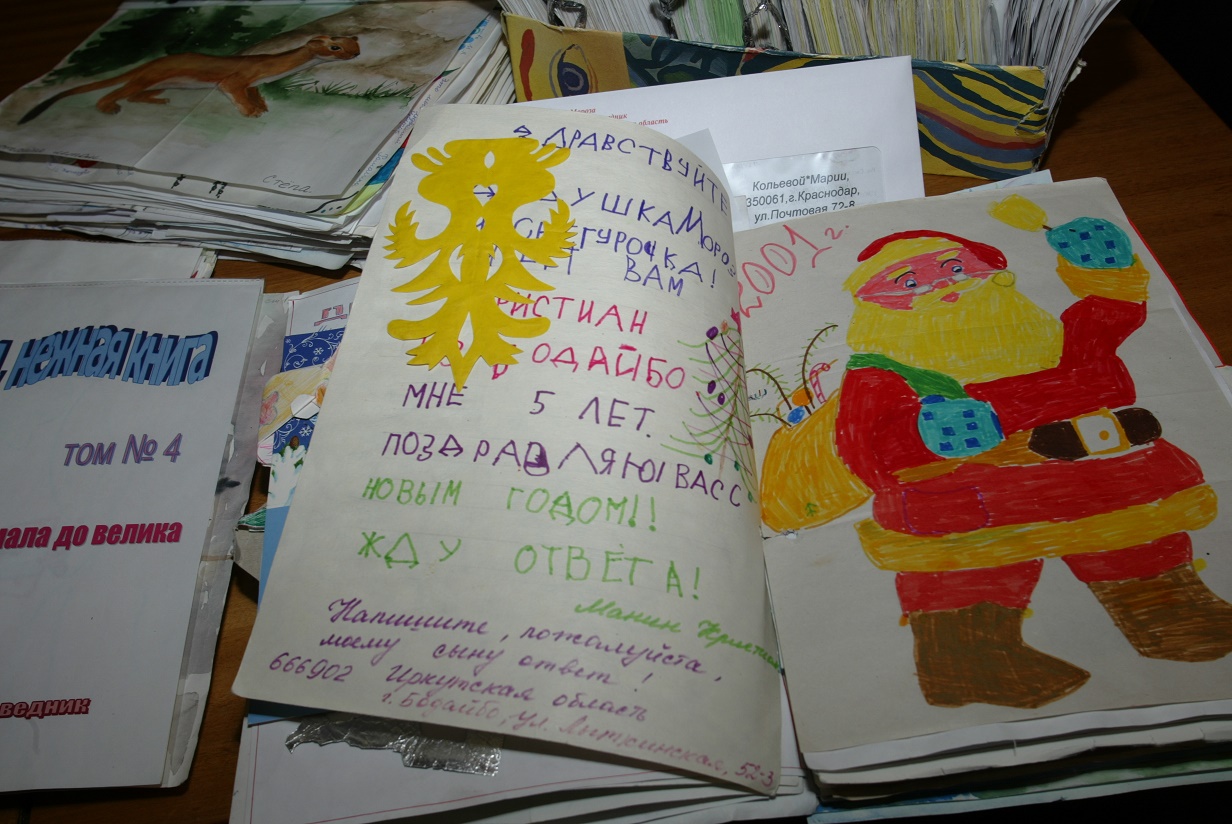 Степа
область
Кольевой*Марии,
350061,г.Краснодар,
ул.Почтовая 72-8
, нежная книга
том № 4
мала до велика
ведник
ЗДРАВСТВУЙТЕ
ДЕДУШКА МОРОЗ
СНЕГУРОЧКА!
ВАМ
КРИСТИАН
БОДАЙБО
МНЕ 5 ЛЕТ.
ПОЗДРАВЛЯЮ ВАС С
НОВЫМ ГОДОМ!!
ЖДУ ОТВЕТА!
Манин Кристиан
Напишите, пожалуйста,
моему сыну ответ!
666902 Иркутская область
г. Бодайбо, ул.
52-3
2001 г.